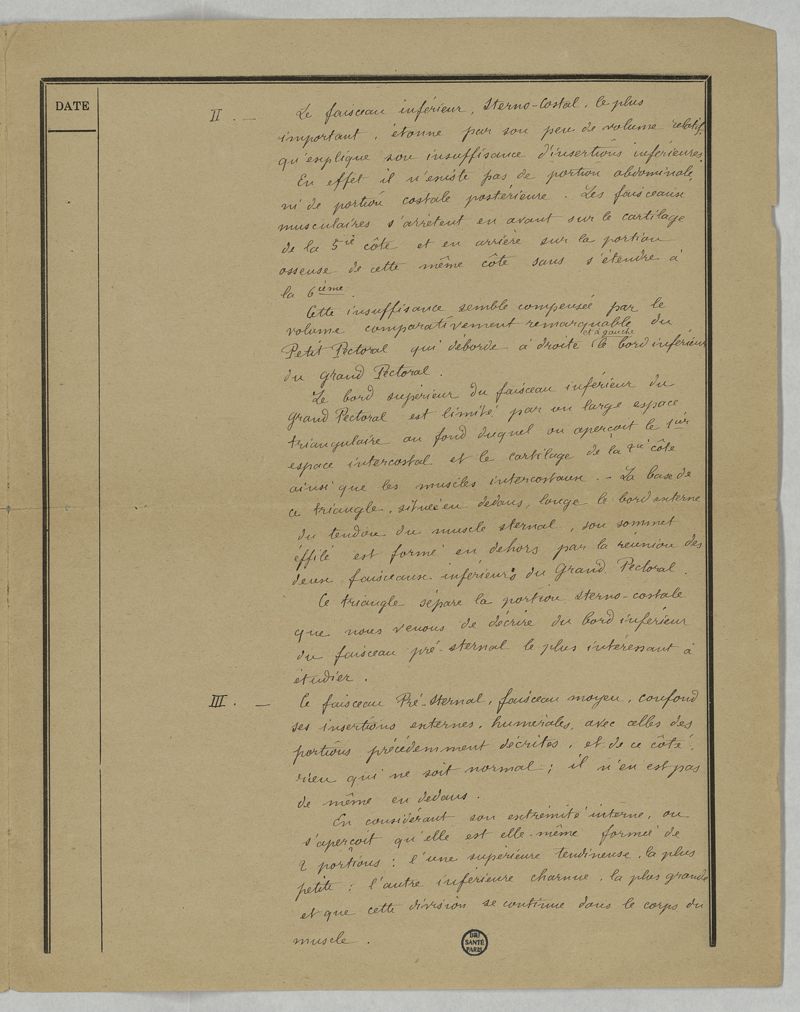 DATE
II. — Le faisceau inférieur, Sterno-Costal, le plus
important, étonne par son peu de volume relatif,
qu'explique son insuffisance d'insertions inférieures.
En effet il n'existe pas de portion abdominale,
ni de portion costale postérieure. Les faisceaux
musculaires s'arrêtent en avant sur le cartilage
de la 5ie côte et en arrière sur la portion
osseuse de cette même côte sans s'étendre à
la 6ième.
Cette insuffisance semble compensée par le
volume comparativement remarquable du
Petit Pectoral qui déborde à droite et à gauche le bord inférieur
du Grand Pectoral.
Le bord supérieur du faisceau inférieur du
Grand Pectoral est limité par un large espace
triangulaire au fond duquel on aperçoit le 1ier
espace intercostal et le cartilage de la 2ie côte
ainsi que les muscles intercostaux. - La base de
ce triangle, située en dedans, longe le bord externe
du tendon du muscle sternal, son sommet
éffilé est formé en dehors par la réunion des
deux faisceaux inférieurs du Grand Pectoral.
Ce triangle sépare la portion sterno-costale
que nous venons de décrire du bord inférieur
du faisceau pré-sternal le plus intéressant à
étudier.
III. — Le faisceau Pré-Sternal, faisceau moyen, confond
ses insertions externes, humérales, avec celles des
portions précédemment décrites, et de ce côté,
rien qui ne soit normal; il n'en est pas
de même en dedans.
En considérant son extrémité interne, on
s'aperçoit qu'elle est elle-même formée de
2 portions: l'une supérieure tendineuse, la plus
petite; l'autre inférieure charnue, la plus grande
et que cette division se continue dans le corps du
muscle.
BIU
SANTÉ
PARIS